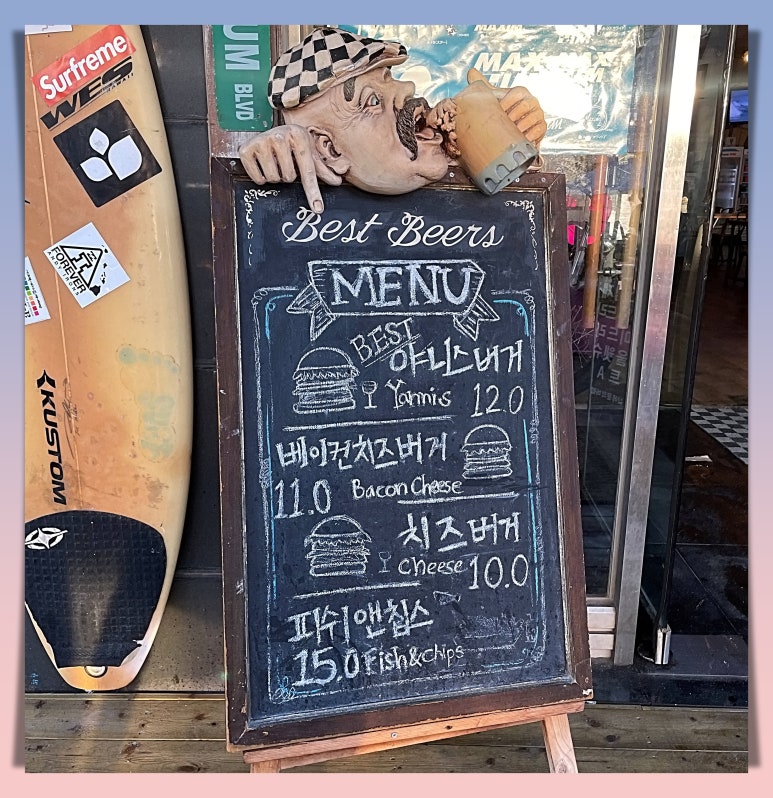 Surfreme
WES
HAWAII
FOREVER
KUSTOM
UM
BLVD
MAX
Best Beers
MENU
BEST
야니스버거
Yannis 12.0
베이컨치즈버거
11.0 Bacon Cheese
치즈버거
cheese 10.0
피쉬앤칩스
15.0 Fish&chips